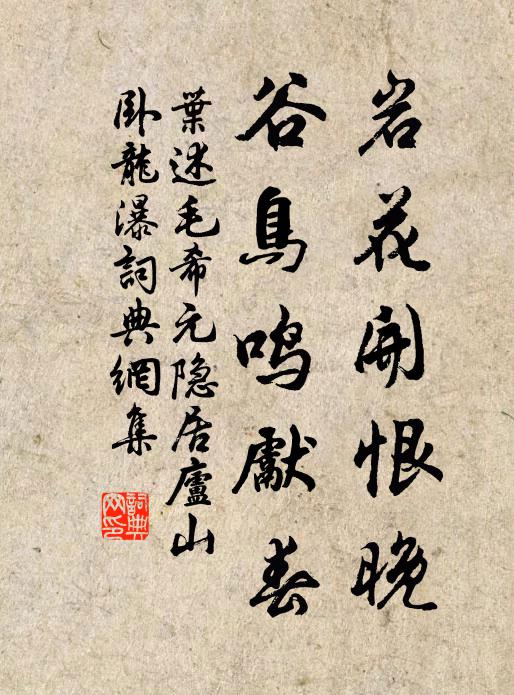 岩花開恨晚
谷鳥鳴獻春
葉述毛希元隐居廬山
卧龍瀑詞典網集
詞典
网印